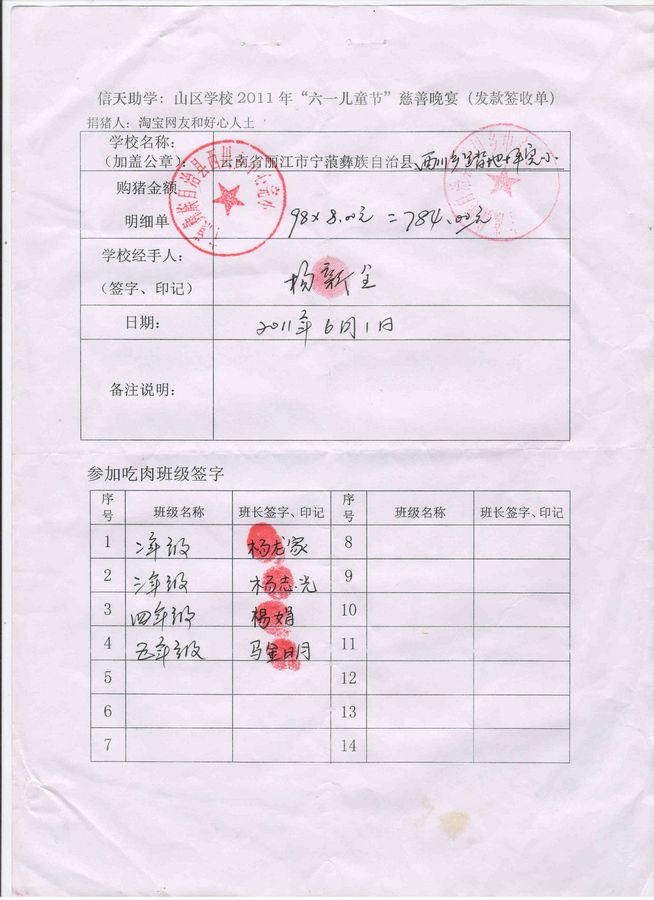 信天助学：山区学校 2011 年“六一儿童节”慈善晚宴（发款签收单）
捐猪人：淘宝网友和好心人士
学校名称：
（加盖公章）： 云南省丽江市宁蒗彝族自治县 西川乡
购猪金额
明细单 98×8.00元 = 784.00元
学校经手人：
（签字、印记） 杨新全
日期： 2011年6月1日
备注说明：
参加吃肉班级签字
序号 班级名称 班长签字、印记 序号 班级名称 班长签字、印记
1 二年级 杨龙家 8
2 三年级 杨志光 9
3 四年级 楊娟 10
4 五年级 马金明 11
5 12
6 13
7 14